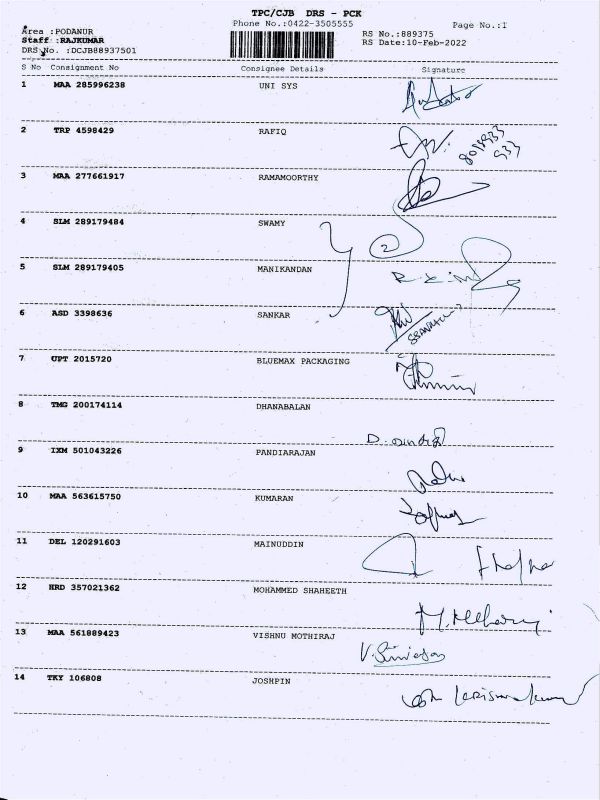 TPC/CJB DRS - PCK
Phone No.:0422-3505555
Page No.:1
Area :PODANUR
Staff :RAJKUMAR
DRS No. :DCJB88937501
RS No.:889375
RS Date:10-Feb-2022
S No Consignment No Consignee Details Signature
1 MAA 285996238 UNI SYS
2 TRP 4598429 RAFIQ
3 MAA 277661917 RAMAMOORTHY
4 SLM 289179484 SWAMY
5 SLM 289179405 MANIKANDAN
6 ASD 3398636 SANKAR
7 UPT 2015720 BLUEMAX PACKAGING
8 TMG 200174114 DHANABALAN
9 IXM 501043226 PANDIARAJAN
10 MAA 563615750 KUMARAN
11 DEL 120291603 MAINUDDIN
12 HRD 357021362 MOHAMMED SHAHEETH
13 MAA 561889423 VISHNU MOTHIRAJ
14 TKY 106808 JOSHPIN